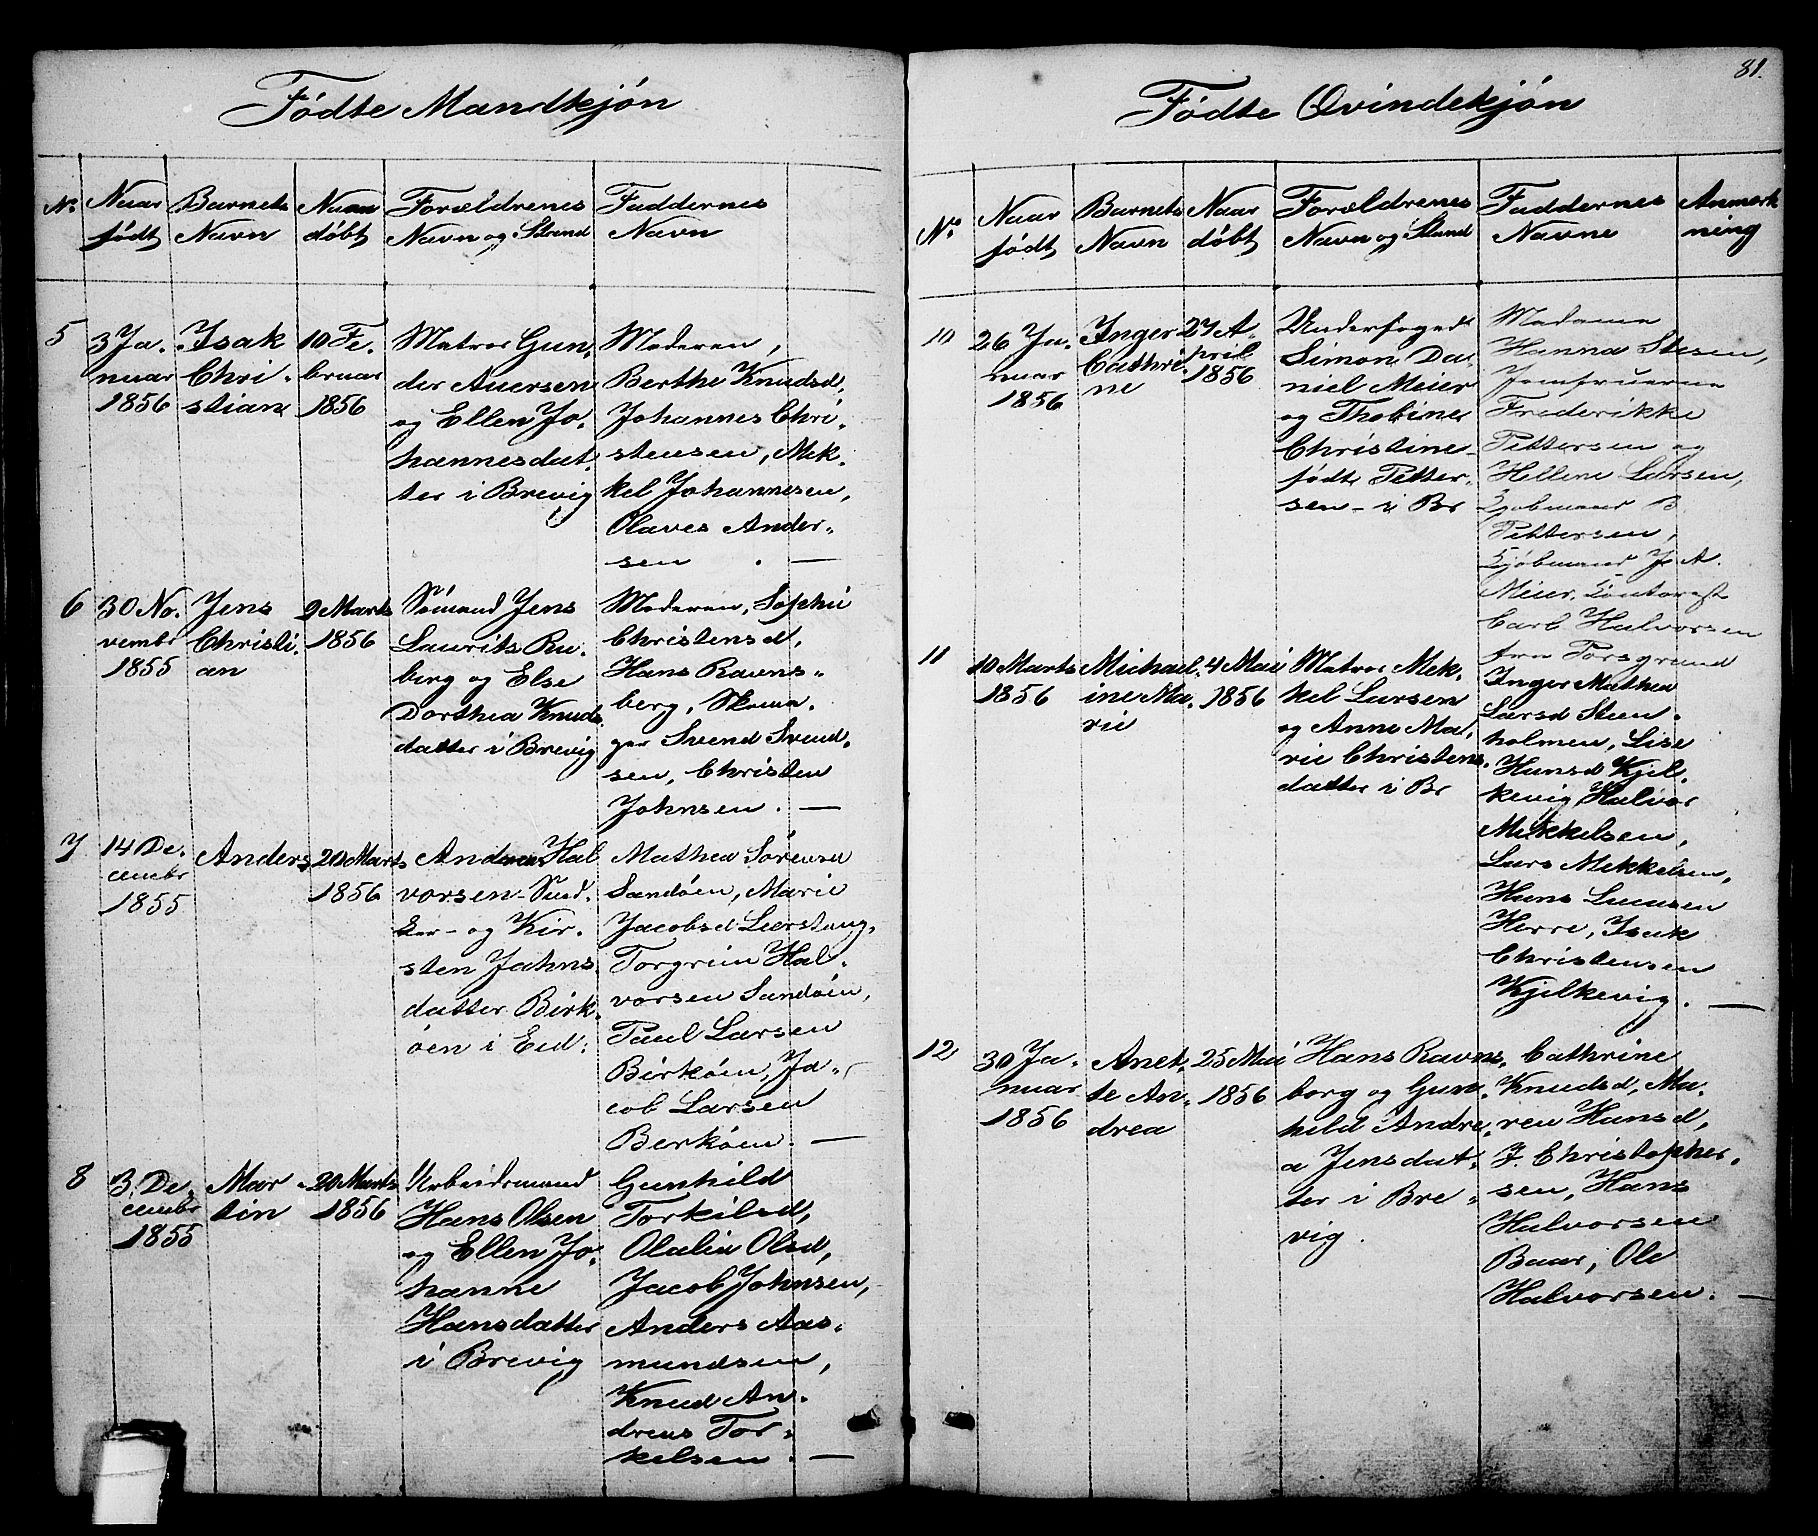 Fødte Mandkjøn
No.
Naar født
Barnets Navn
Naar døbt
Forældrenes Navn og Stand
Faddernes Navn
5
3 Ja-
nuar
1856
Isak
Chri-
stian
10 Fe-
bruar
1856
Matros Gun-
der Auersen
og Ellen Jo-
hannesdat-
ter i Brevig
Moderen,
Berthe Knudsd,
Johannes Chri-
stensen, Mik-
kel Johannesen,
Olaves Ander-
sen . —
6
30 No-
vembr
1855
Jens
Christi-
an
2 Marts
1856
Sømand Jens
Laurits Ru-
berg og Else
Dorthea Knuds
datter i Brevig
Moderen, Sophie
Christensd,
Hans Ravns-
berg, Skoma-
ger Svend Svend-
sen, Christen
Johnsen. —
7
14 De-
cembr
1855
Anders
20 Marts
1856
Andreas Hal
vorsen - Sned-
ker - og Kir-
sten Jahns
datter Birk-
øen i Eid:
Mathea Sørensd
Sandøen, Marie
Jacobsd Lerstang,
Torgrim Hal-
vorsen Sandøen,
Paul Larsen
Birkøen, Ja-
cob Larsen
Berkøen. —
8
3 De-
cembr
1855
Mar-
tin
20 Marts
1856
Arbeidsmand
Hans Olsen
og Ellen Jo-
hanne
Hansdatter
i Brevig
Gunhild
Torkilsd,
Olalia Olsd,
Jacob Johnsen,
Anders Aas-
mundsen,
Knud An-
dreas Tor-
kelsen. —
81.
Fødte Qvindekjøn
No.
Naar født
Barnets Navn
Naar døbt
Forældrenes Navn og Stand
Faddernes Navne
Anmærk
ning
10
26 Ja-
nuar
1856
Inger
Cathri-
ne
27 A-
pril
1856
Underfoged
Simon Da-
niel Meier
og Thobine
Christine
født Petter-
sen - i Br
Madame
Hanna Stesen,
Jomfruerne
Frederikke
Pettersen og
Hellene Larsen,
Kjøbmand B
Pettersen,
Kjøbmand J. A.
Meier, Contorist
Carb Halvorsen
fra Porsgrund
11
10 Marts
1856
Michael-
ine Ma-
rie
4 Mai
1856
Matros Mik-
kel Larsen
og Anne Ma-
rie Christens-
datter i Br
Inger Mathea
Larsd Steen-
holmen, Lise
Hansd Kjel-
kevig, Halvor
Mikkelsen,
Lars Mekkelsen,
Hans Lucasen
Herre, Isak
Christensen
Kjelkevig. —
12
30 Ja-
nuar
1856
Anet-
te An-
drea
25 Mai
1856
Hans Ravns-
borg og Gun-
hild Andre-
a Jensdat-
ter i Bre-
vig.
Cathrine
Knudsd, Ma-
ren Hansd,
J. Christopher-
sen, Hans
Halvorsen
Baar, Ole
Halvorsen. —